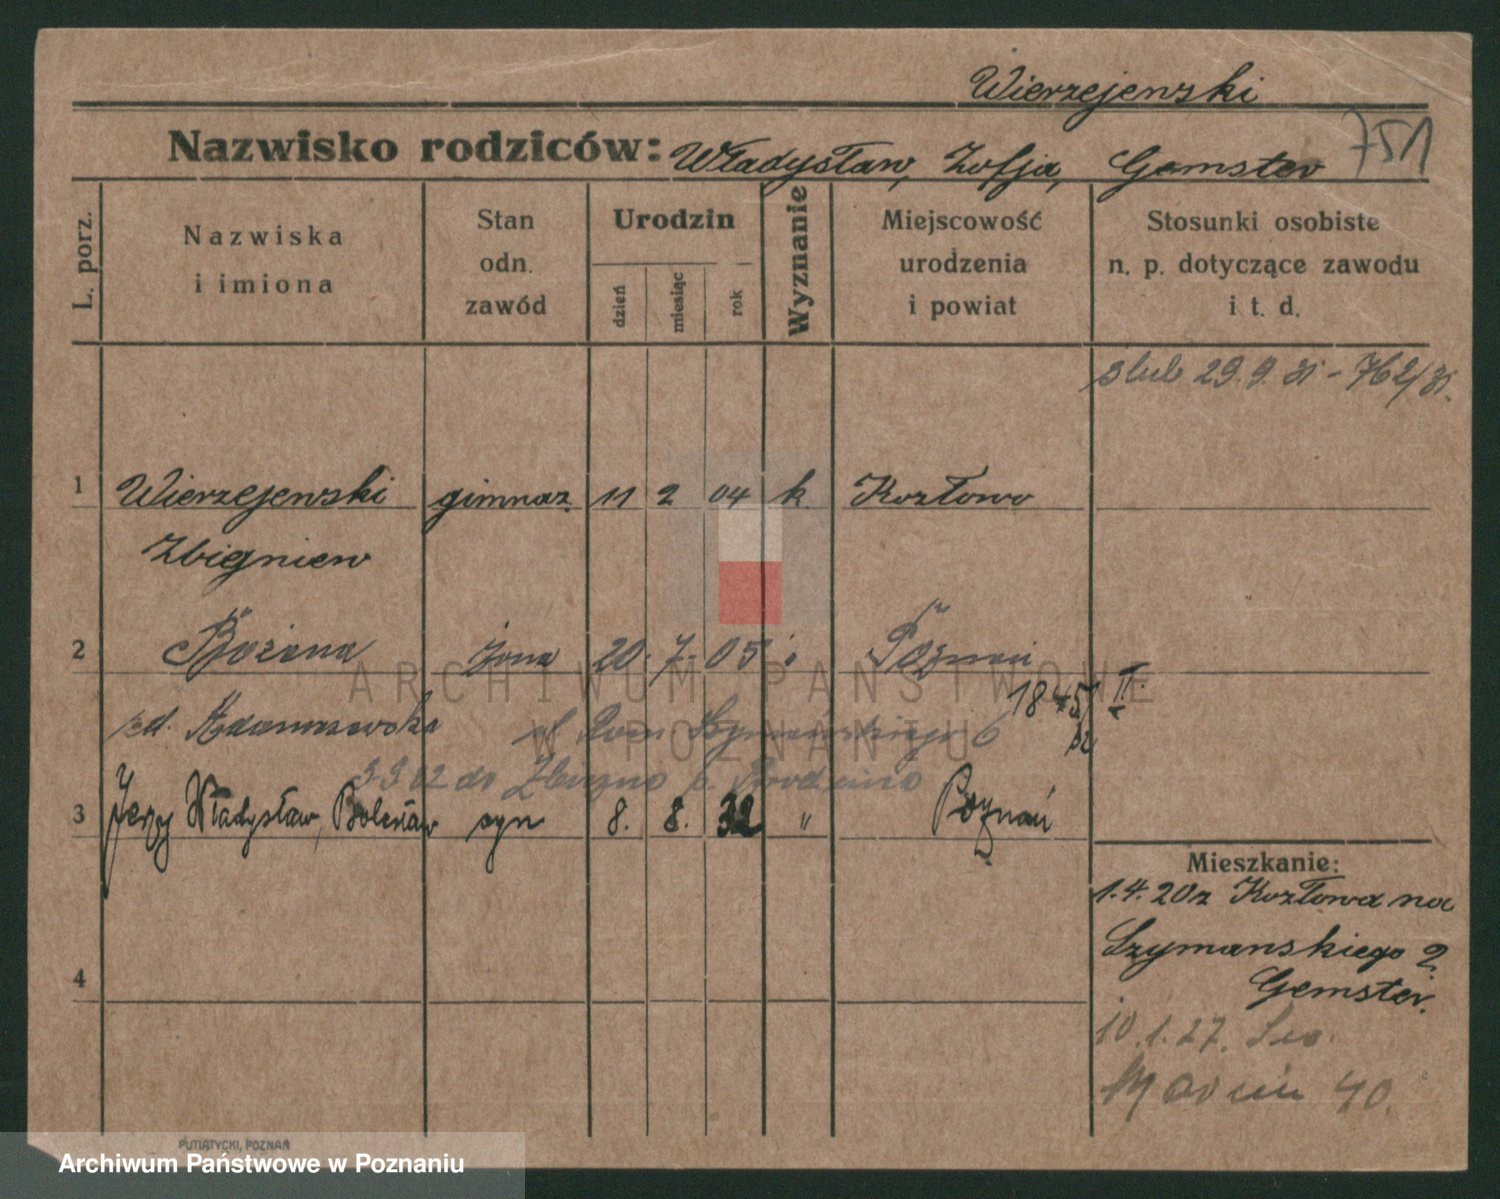 Wierzejewski
Nazwisko rodziców: Władysław, Zofja, Gemster 751
L. porz.
Nazwiska
i imiona
Stan
odn.
zawód
Urodzin
dzień
miesiąc
rok
Wyznanie
Miejscowość
urodzenia
i powiat
Stosunki osobiste
n. p. dotyczące zawodu
i t. d.
ślub 29.9.31 - 762/31.
1 Wierzejewski gimnaz. 11 2 04 k. Kozłowo
Zbigniew
2 Bożena żona 20. 7. 05 Poznań
1845 II.
zd. Adamaszewska Szymańskiego 6
3.9.32 do Zbiczno p. Brodnica
3 Jerzy Władysław, Bolesław syn 8. 8. 32 " Poznań
Mieszkanie:
1.4.20 z Kozłowa na
Szymańskiego 2
Gemster.
4
10.1.27. Św.
Marcin 40.
ARCHIWUM PAŃSTWOWE
W POZNANIU
PUTIATYCKI, POZNAŃ
Archiwum Państwowe w Poznaniu